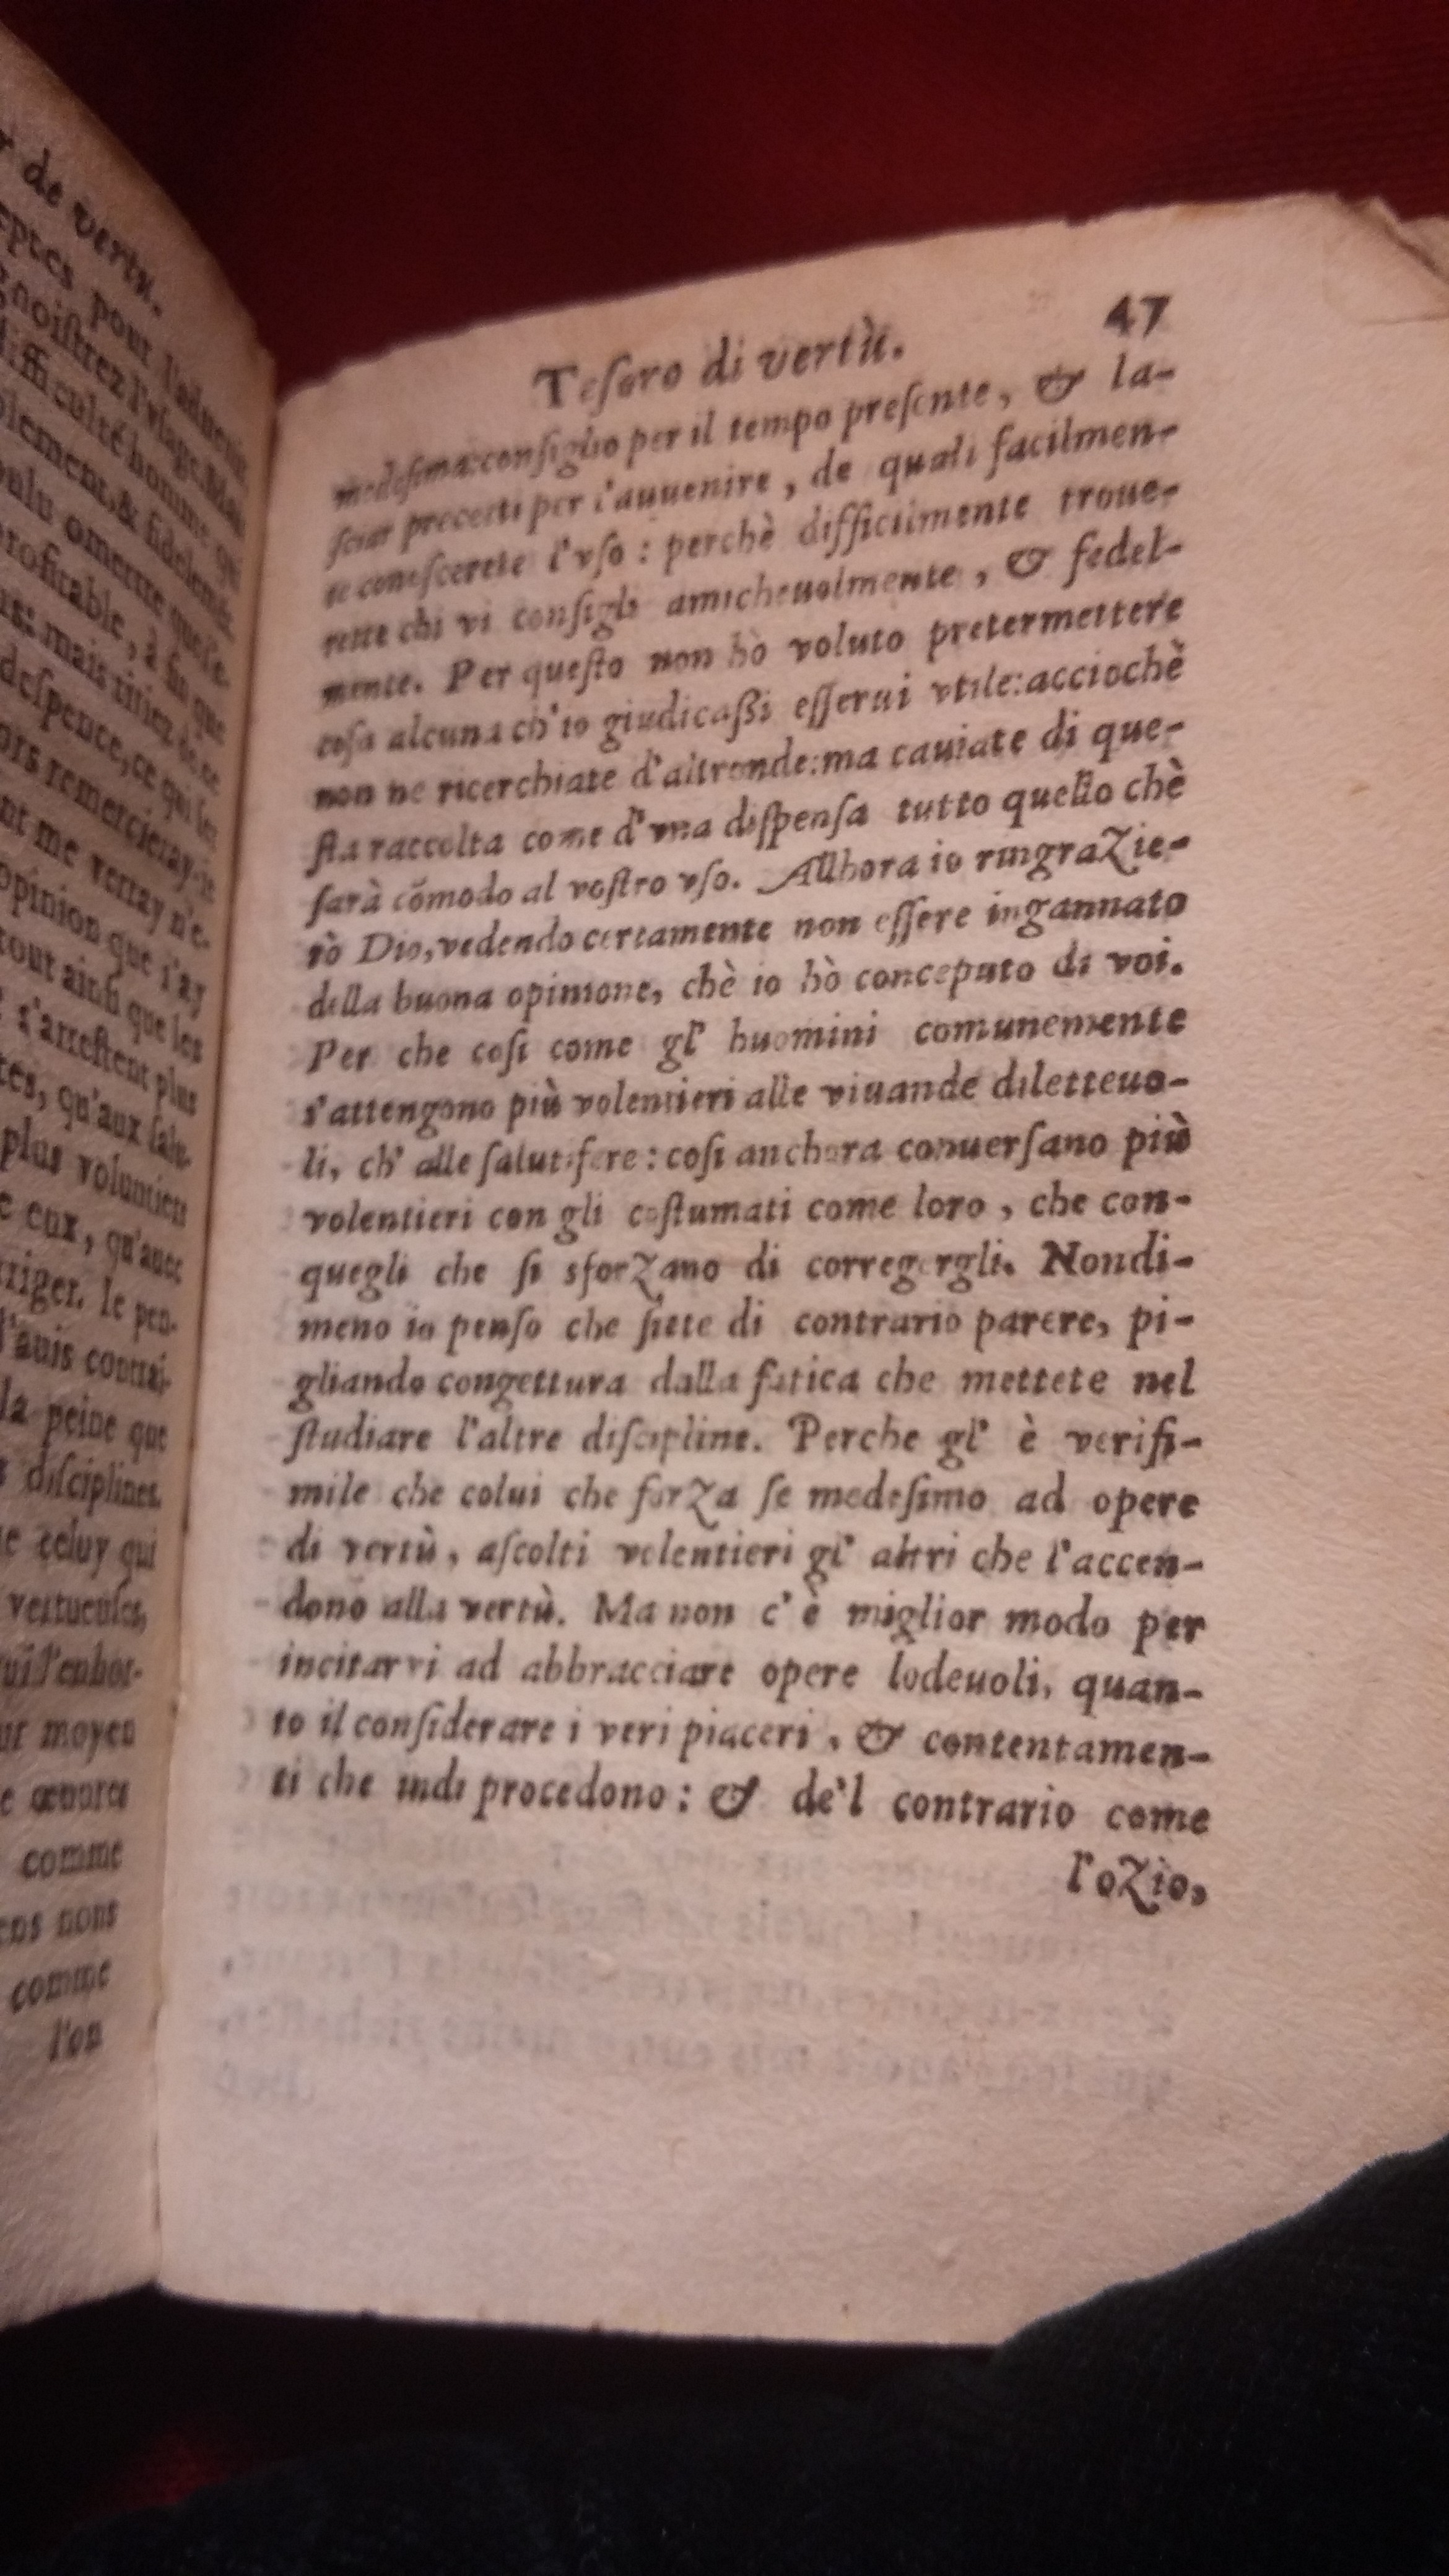 r de vertu.
eptes pour l'aduenir
gnoistrez l'vsage. Mais
difficulté homme qui
blement, & fidelement.
oulu omettre
profitable, à fin que
mais tiriez de ce
despence, ce qui
ors remercieray-ie
nt me verray n'e-
opinion que i'ay
tout ainsi que les
s'arrestent plus
tes, qu'aux salu-
plus voluntiers
c eux, qu'auec
rriger. Ie pen-
d'auis contrai-
la peine que
s disciplines.
e celuy qui
vertueuses,
qui l'enhor-
ur moyen
e œuures
comme
ens nons
comme
l'on
Tesoro di vertù. 47
medesima: consiglio per il tempo presente, & la-
sciar precetti per l'auuenire, de quali facilmen-
te conescerete l'vso: perchè difficilmente troue-
rete chi vi consigli amicheuolmente, & fedel-
mente. Per questo non hò voluto pretermettere
cosa alcuna ch'io giudicaßi esserui vtile: acciochè
non ne ricerchiate d'altronde: ma cauiate di que-
sta raccolta come d'vna dispensa tutto quello chè
sarà cōmodo al vostro vso. Allhora io ringrazie-
rò Dio, vedendo certamente non essere ingannato
della buona opinione, chè io hò conceputo di voi.
Per che cosi come gl' huomini comunemente
s'attengono più volentieri alle viuande diletteuo-
li, ch' alle salutifere: cosi anchora conuersano più
volentieri con gli costumati come loro, che con-
quegli che si sforzano di corregergli. Nondi-
meno io penso che siete di contrario parere, pi-
gliando congettura dalla fatica che mettete nel
studiare l'altre discipline. Perche gl' è verisi-
mile che colui che forza se medesimo ad opere
di vertù, ascolti volentieri gl' altri che l'accen-
dono alla vertù. Ma non c'è miglior modo per
incitarvi ad abbracciare opere lodeuoli, quan-
to il considerare i veri piaceri, & contentamen-
ti che indi procedono: & de'l contrario come
l'ozio,